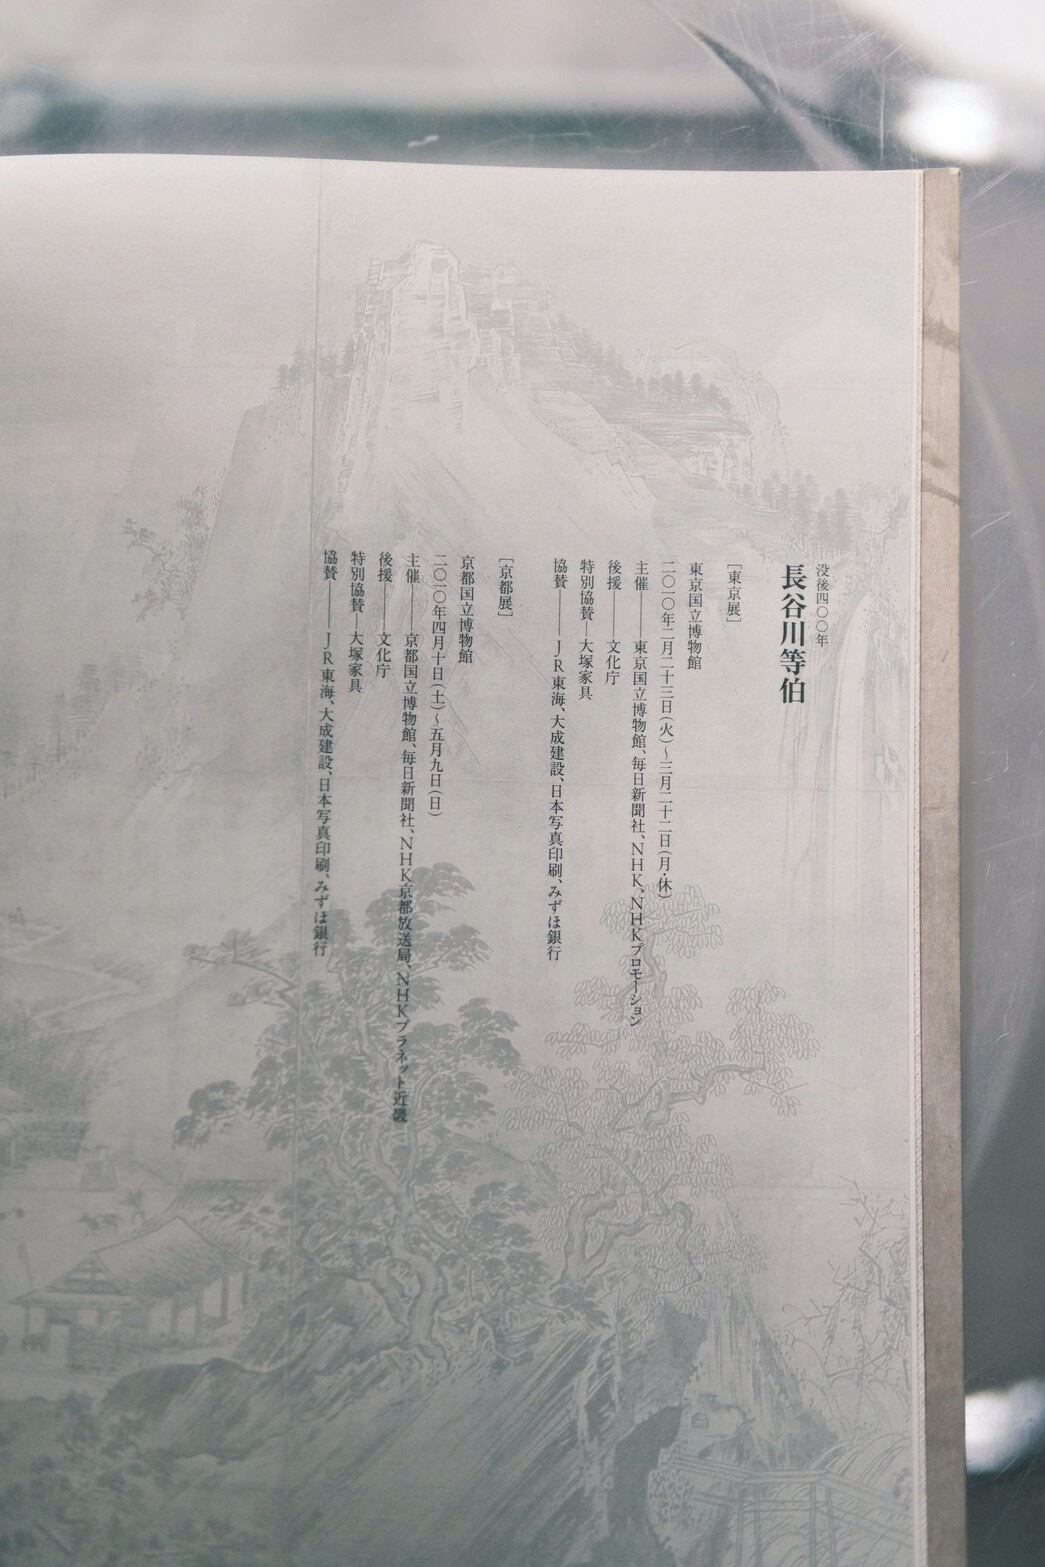 没後四〇〇年
長谷川等伯
［東京展］
東京国立博物館
二〇一〇年二月二十三日（火）～三月二十二日（月・休）
主催――東京国立博物館、毎日新聞社、NHK、NHKプロモーション
後援――文化庁
特別協賛―大塚家具
協賛――JR東海、大成建設、日本写真印刷、みずほ銀行
［京都展］
京都国立博物館
二〇一〇年四月十日（土）～五月九日（日）
主催――京都国立博物館、毎日新聞社、NHK京都放送局、NHKプラネット近畿
後援――文化庁
特別協賛―大塚家具
協賛――JR東海、大成建設、日本写真印刷、みずほ銀行